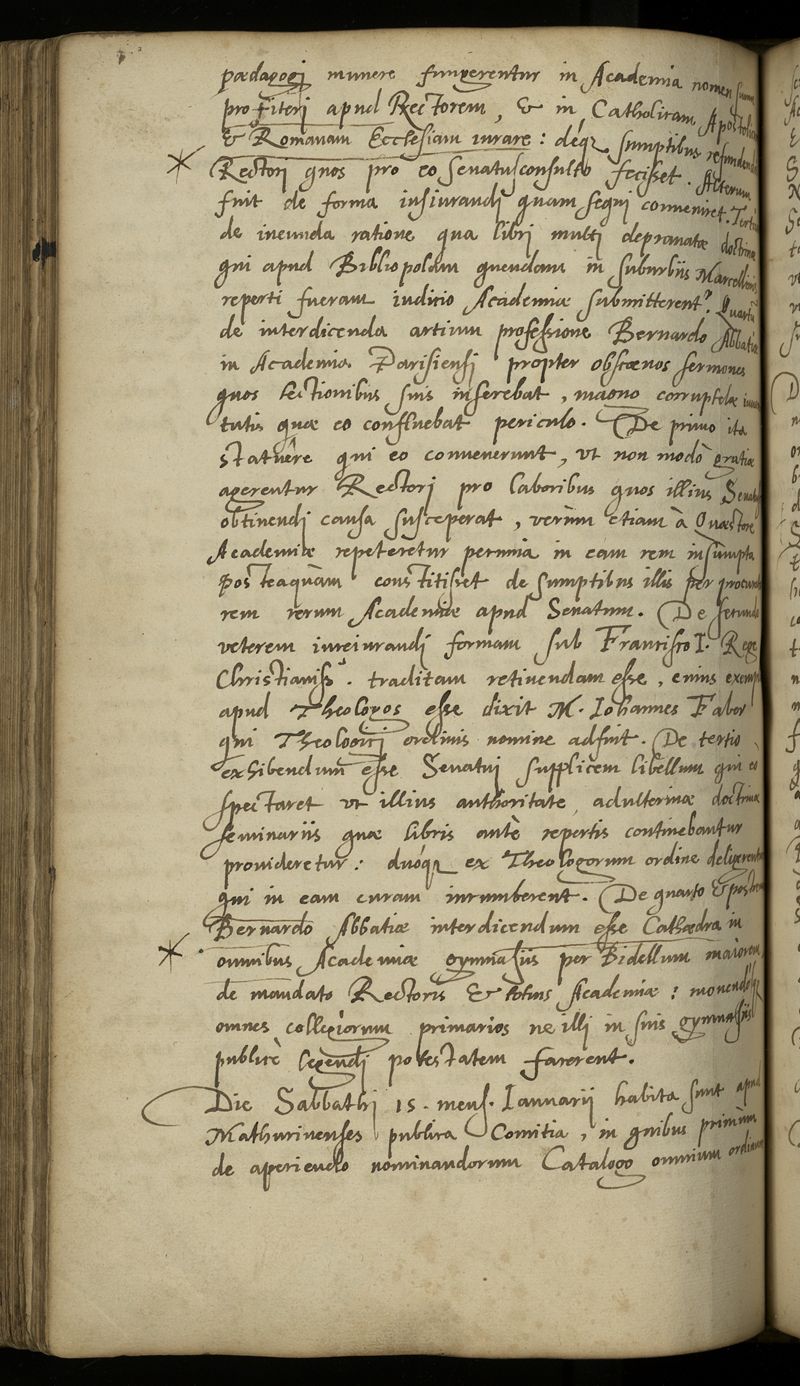 pædagogi munere fungerentur in Academia nomen suum
profiteri apud Rectorem, & in Catholicam Apostolicam
& Romanam Ecclesiam iurare : deq; sumptibus refundendis
Rectori quos pro eo senatusconsulto fecisset. Alterum
fuit de forma iusiurandi quam sequi conveniret. Tertium
de ineunda ratione qua libri multi depravatæ doctrinæ
qui apud Bibliopolam quendam in suburbiis Marcellinis
reperti fueram iudicio Academiæ submitterent.? Quartum
de interdicenda artium professione Bernardo Abbatiæ
in Academia Parisiensi propter obscœnos sermones
quos lectionibus suis inserebat, magno corruptelæ iuuen
tutis quæ eo confluebat periculo. De primo ita
statuêre qui eo convenerunt, ut non modò gratiæ
agerentur Rectori pro laboribus quos illius Senatus
obtinendi causa susceperat, verùm etiam à Quæstore
Academiæ repeteretur pecunia in eam rem insumpta
posteaquàm constitisset de sumptibus illis per procurato
rem rerum Academiæ apud Senatum. De secundo
veterem iureiurandi formam sub Francisco I. Rege
Christianiss°. traditam retinendam esse, cuius exempl
apud Theologos esse dixit M. Iohannes Faber
qui Theologici ordinis nomine adfuit. De tertio
exhibendum esse Senatui supplicem libellum qui eo
spectaret ut illius authoritate adulterinæ doctrinæ
seminariis quæ libris antè repertis continebantur
provideretur : duóq; ex Theologorum ordine deligerentur
qui in eam curam incumberent. De quarto & postremo
Bernardo Abbatiæ interdicendum esse Cathædra in
omnibus Academiæ gymnasiis per Bidellum maiorem
de mandato Rectoris & totius Academiæ : monendosq;
omnes collegiorum primarios ne illi in suis gymnasiis
publicè legendi potestatem facerent.
Die Sabbathi 15. mens. Ianuarii habita sunt apud
Mathurinenses publica Comitia, in quibus primùm
de aperiendo nominandorum Catalogo omnium ordinum